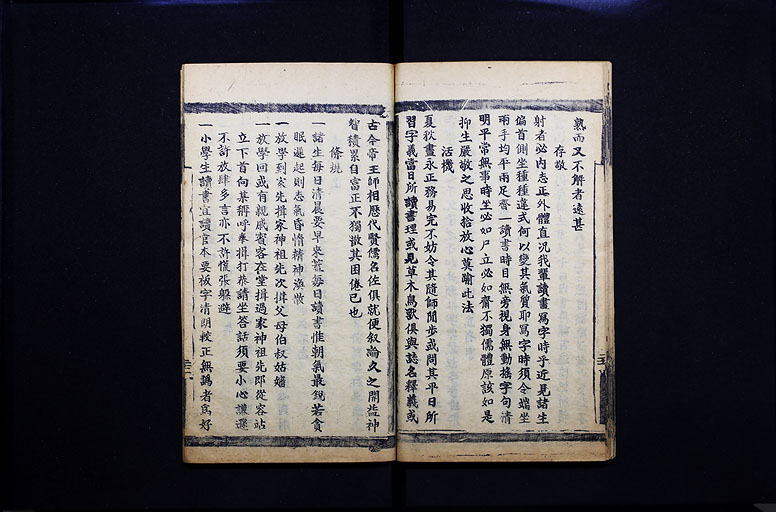 熟而又不解者遠甚
存敬
射者必内志正外體直况我輩讀書寫字時乎近見諸生
偏首側坐種種違式何以變其氣質耶寫字時須令端坐
兩手均平兩足齊一讀書時目無旁視身無動搖字句清
明平常無事時坐必如尸立必如齋不獨儒體原該如是
抑生嚴敬之思收拾放心莫踰此法
活機
夏秋晝永正務易完不妨令其隨師閒步或問其平日所
習字義當日所讀書理或見草木鳥獸俱與誌名釋義或
古今帝王師相歷代賢儒名佐俱就便叙論久之開益神
智積累自富正不獨散其困倦已也
條規
一諸生每日清晨要早來蓋每日讀書惟朝氣最銳若貪
眠遲起則志氣昏惰精神渙散
一放學到家先揖家神祖先次揖父母伯叔姑嬸
一放學回或有親戚賓客在堂揖過家神祖先即從容站
立下首向某稱呼奉揖打恭請坐答話須要小心謙遜
不許放肆多言亦不許慌張躲避
一小學生讀書宜讀官本要板字清朗較正無譌者爲好